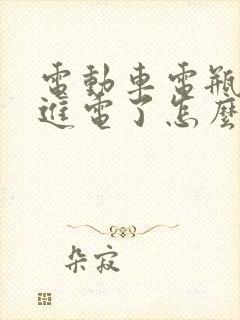 電動車電瓶
進電了怎麼
朵寂